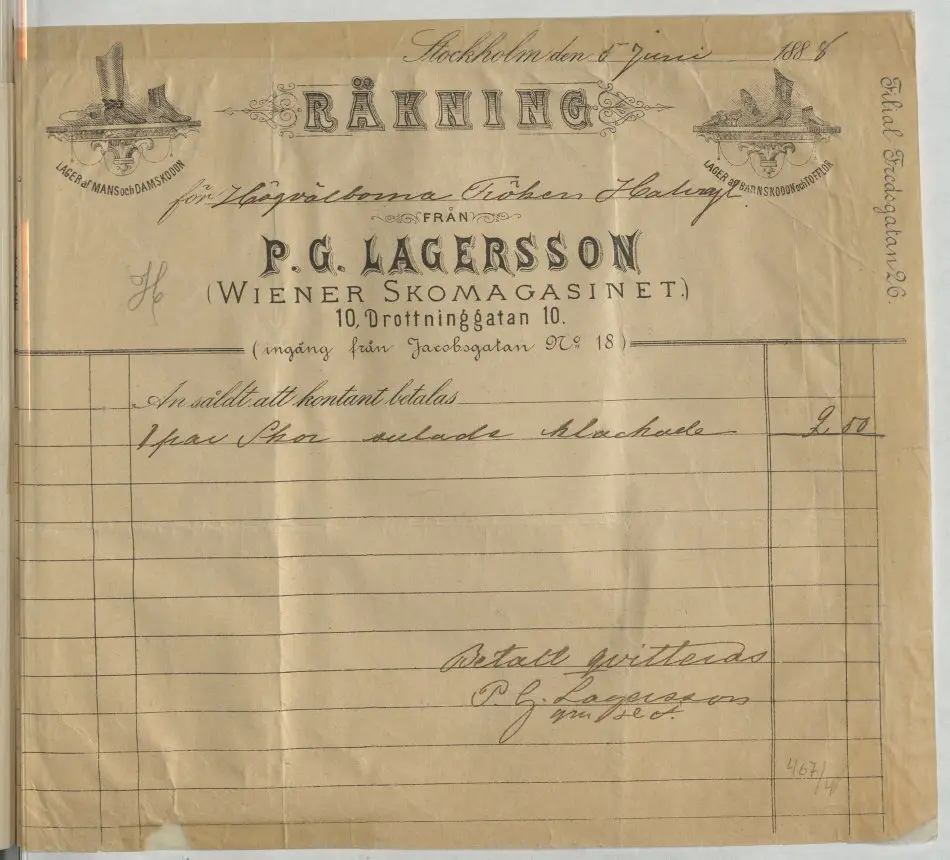 Stockholm den 5 Juni 1888
RÄKNING
LAGER af MANS och DAMSKODON
LAGER af BARNSKODON och TOFFLOR
Filial Fredsgatan 26.
för Högvälborna Fröken Hallwyl
FRÅN
P.G. LAGERSSON
(WIENER SKOMAGASINET.)
H
10, Drottninggatan 10.
(ingång från Jacobsgatan No 18)
An såldt att kontant betalas
1 par Skor sulade klackade 2,50
Betalt qvitteras
P. G. Lagersson
467/4